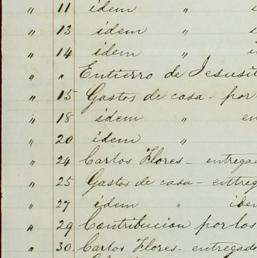 " 11 idem "
" 13 idem "
" 14 idem "
" " Entierro de Jesusi
" 15 Gastos de casa - por
" 18 idem " en
" 20 idem "
" 24 Carlos Flores - entregad
" 25 Gastos de casa - entreg
" 27 idem " iden
" 29 Contribucion por los
" 30. Carlos Flores - entregado